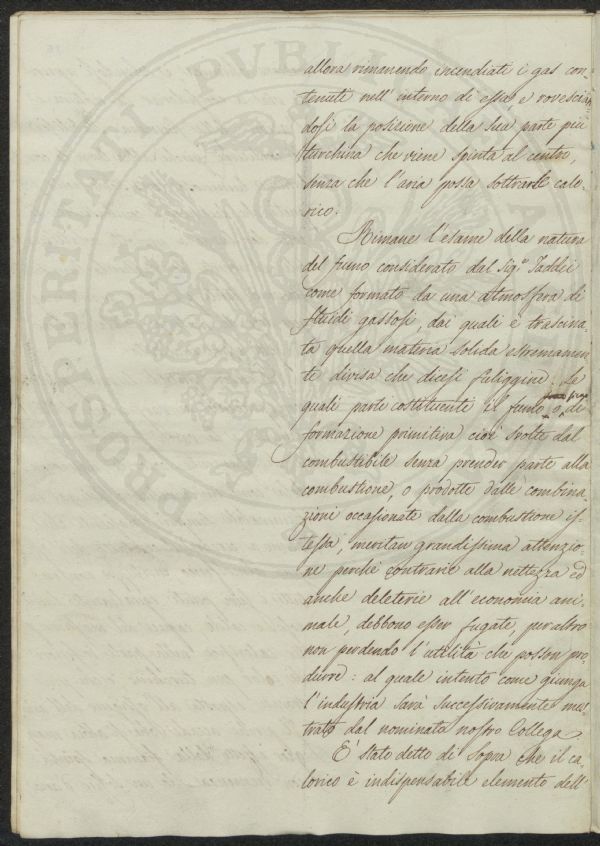 PROSPERITATI PVBLICAE A
allora rimanendo incendiati i gas con-
tenuti nell' interno di essa, e rovescian-
dosi la posizione della sua parte più
turchina che viene spinta al centro,
senza che l'aria possa sottrarle calo-
rico.
Rimane l'esame della natura
del fumo considerato dal Sig.r Taddei
come formato da una atmosfera di
fluidi gassosi, dai quali è trascina-
ta quella materia solida estremamen-
te divisa che dicesi fuliggine. Le
quali parte costituente il fumo o di
formazione primitiva cioè svolte dal
combustibile senza prender parte alla
combustione, o prodotte dalle combina-
zioni occasionate dalla combustione is-
tessa, meritan grandissima attenzio-
ne perchè contrarie alla nettezza ed
anche deleterie all'economia ani-
male, debbono esser fugate, per altro
non perdendo l'utilità che posson pro-
durre: al quale intento come giunga
l'industria sarà successivamente mos-
trato dal nominato nostro Collega.
E' stato detto di sopra che il ca-
lorico è indispensabile elemento dell'